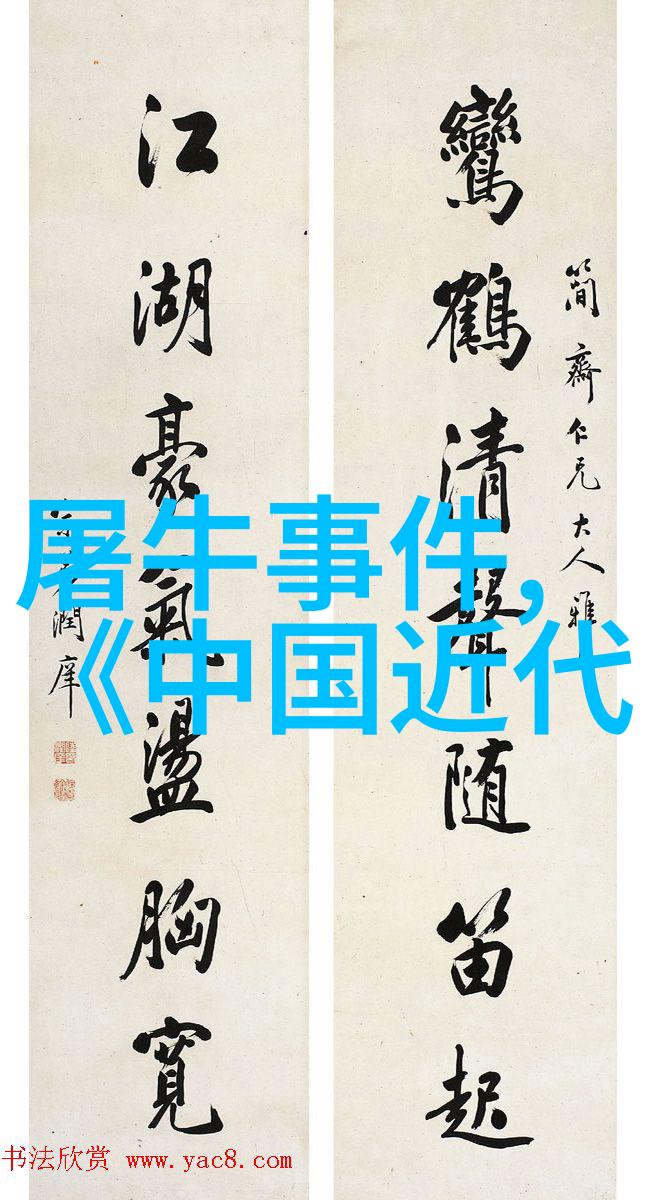 簡齋仁兄大人雅
鸞鶴清聲随笛起
江湖豪氣盪胸寬
潤庠
屠牛事件,
《中国近代
书法欣赏 www.yac8.com